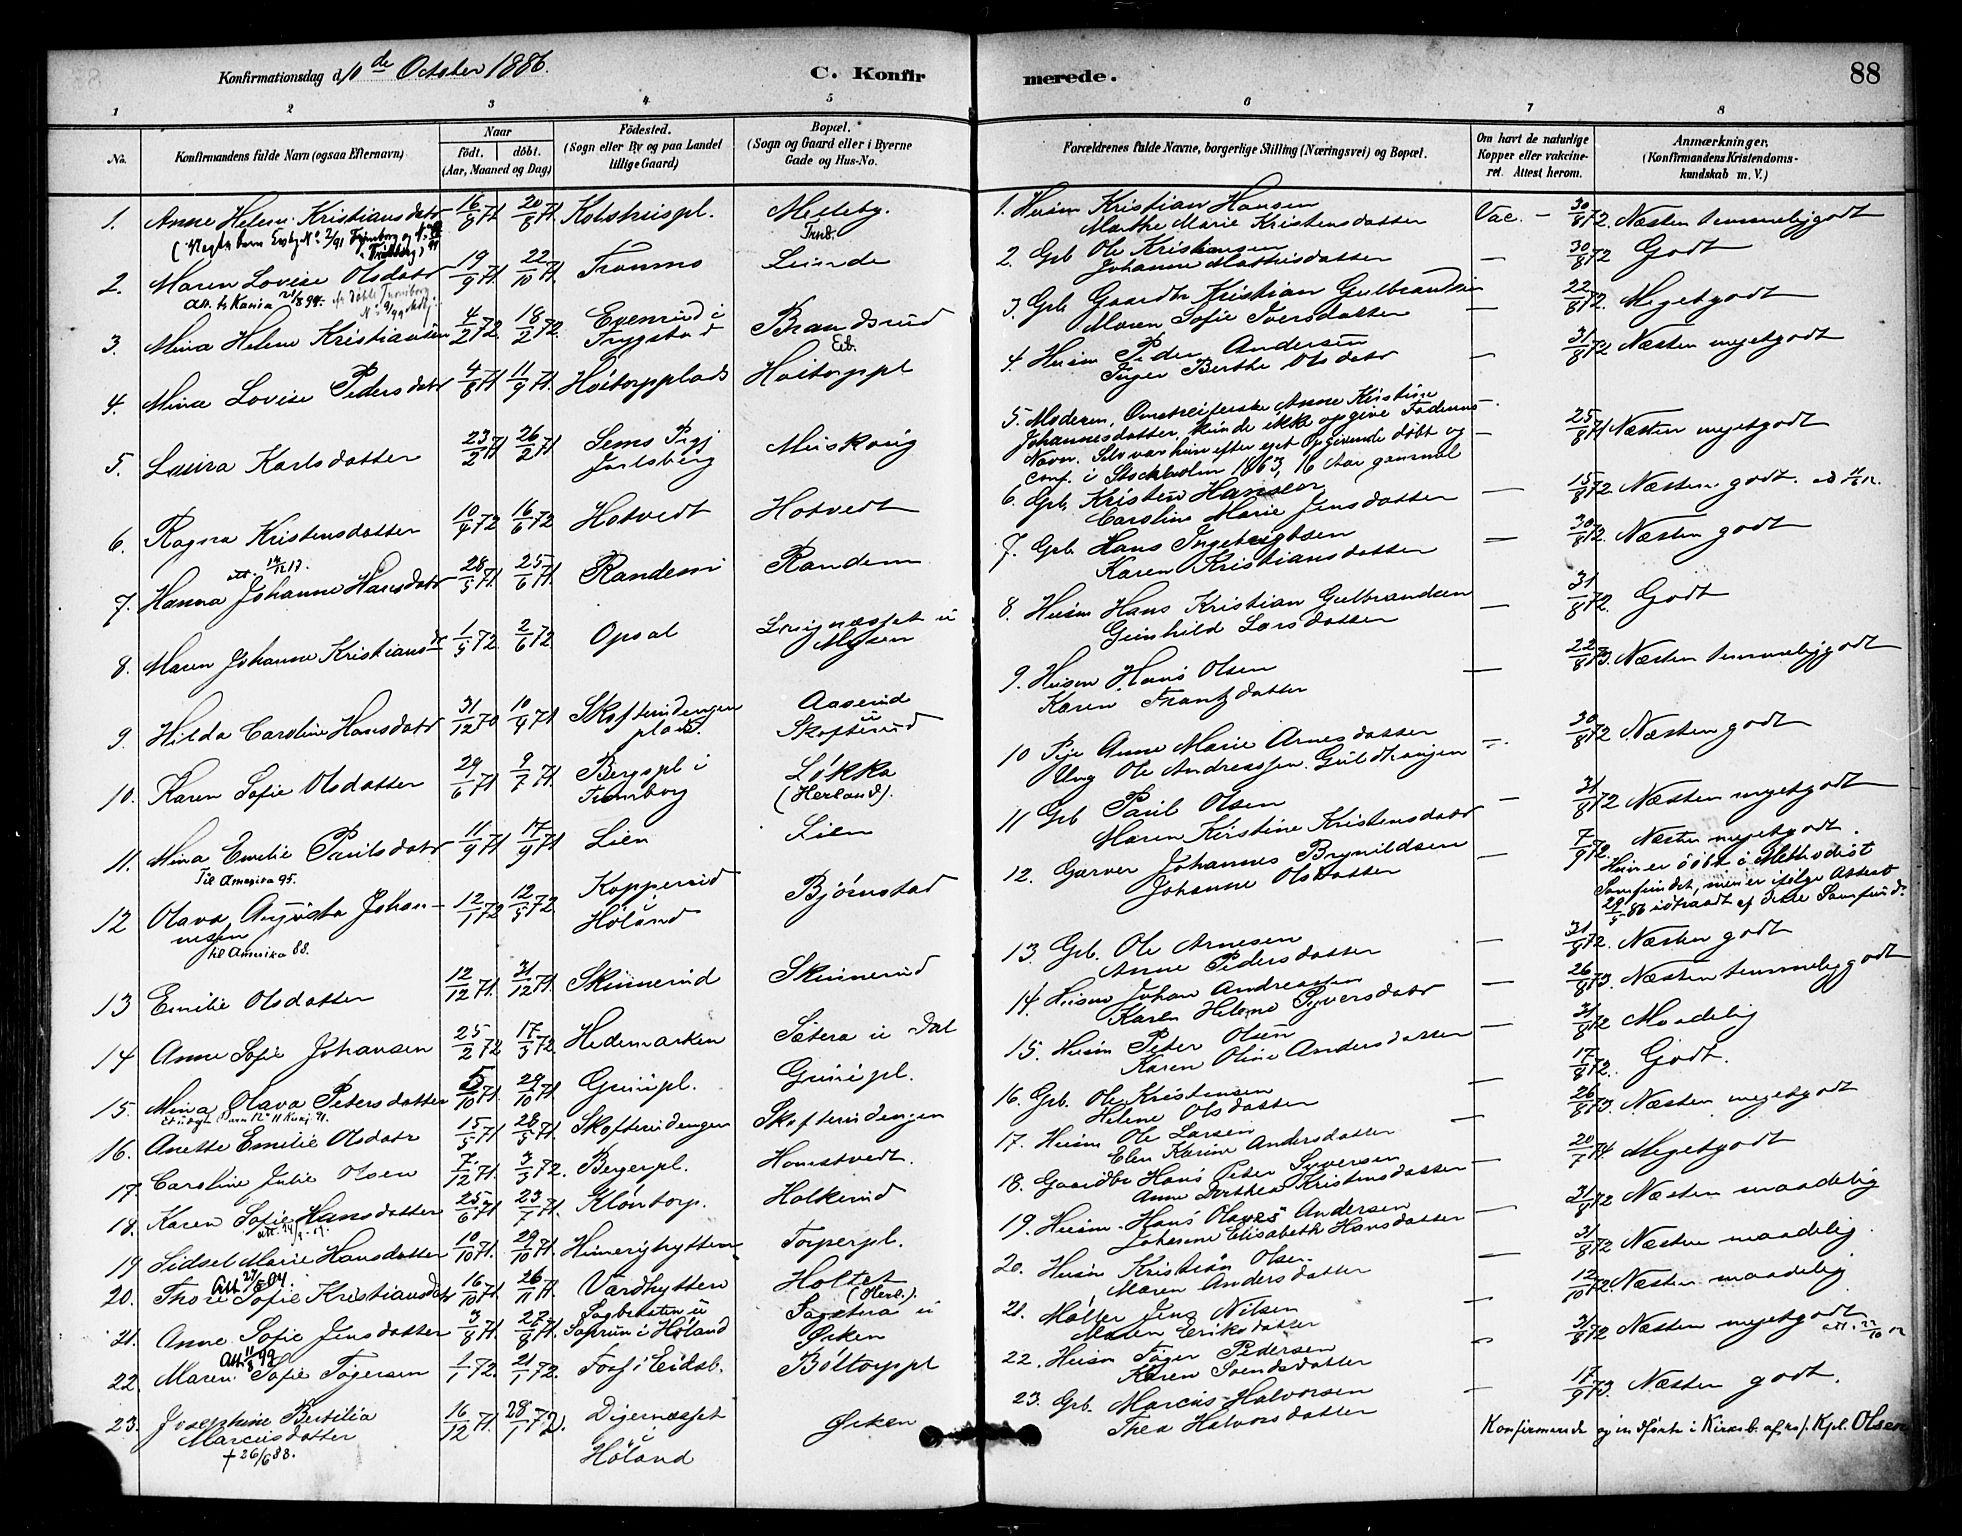 Konfirmationsdag d. 10de October 1886.
C. Konfirmerede.
88
1 2 3 4 5 6 7 8
No.
Konfirmandens fulde Navn (ogsaa Efternavn)
Naar
födt. döbt.
(Aar, Maaned og Dag)
Födested.
(Sogn eller By og paa Landet
tillige Gaard)
Bopæl.
(Sogn og Gaard eller i Byerne
Gade og Hus-No.
Forældrenes fulde Navne, borgerlige Stilling (Næringsvei) og Bopæl.
Om havt de naturlige
Kopper eller vakcine-
ret. Attest herom.
Anmærkninger.
(Konfirmandens Kristendoms-
kundskab m. V.)
1. Anne Helene Kristiansdatr 16/8 71 20/8 71 Kolshuspl. Melleby. Trnb. 1. Husm Kristian Hansen
Marthe Marie Kristensdatter Vac. - 30/8 72. Næsten temmeliggodt
2. Maren Lovise Olsdatr 19/9 71 22/10 71. Tronmo Lunde 2. Grb Ole Kristiansen
Johanne Mathisdatter - 30/8 72 Godt
Att. til Kania 21/8 94.
3. Mina Helene Kristiansen 4/2 72. 18/2 72. Evenrud i
Trygstad Brandsrud
Eib. 3. Grb. Gaardbr Kristian Gulbrandsen
Maren Sofie Iversdatter - 22/8 72. Megetgodt
4. Mina Lovise Pedersdatr 4/8 71 11/9 71. Høitorpplads Høitorppl 4. Husm Peder Andersen
Inger Berthe Olsdatr - 31/8 72 Næsten megetgodt
5. Laura Karlsdatter 23/2 71 26/2 71 Sems Pgj
Jarlsberg Muskoug 5. Moderen, Omstreiferske Anne Kristine
Johannesdatter, kunde ikke opgive Faderens
Navn. Selv var hun efter eget Opgivende döbt og
conf. i Stockholm 1863, 16 Aar gammel - 25/8 71 Næsten megetgodt
6. Ragna Kristensdatter 10/4 72 16/6 72 Hotvedt Hotvedt 6. Grb. Kristen Hansen
Caroline Marie Jensdatter - 15/8 72. Næsten godt.
7. Hanna Johanne Hansdatr 28/5 71. 25/6 71. Randem Randem 7. Grb. Hans Ingebrigtsen
Karen Kristiansdatter - 30/8 72. Næsten godt
8. Maren Johanne Kristiansdr 1/5 72 2/6 72 Opsal u
Mysen 8. Husm Hans Kristian Gulbrandsen
Gunhild Larsdatter - 31/8 72. Godt
9. Hilda Caroline Hansdatr 31/12 70 10/4 71 Skofterudengen
plads. Aaserud
u
Skofterud 9. Husm Hans Olsen
Karen Frantzdatter - 22/8 73. Næsten temmeliggodt
10. Karen Sofie Olsdatter 29/6 71 9/7 71. Bergspl i
Tromborg Løkka
(Herland). 10 Pige Anne Marie Arnesdatter
Ung Ole Andreassen Guldhaugen - 30/8 72 Næsten godt
11. Mina Emilie Paulsdatr 11/9 71 17/9 71 Lien Lien 11 Grb Paul Olsen
Maren Kristine Kristensdatr - 31/8 72 Næsten megetgodt
Til Amerika 95.
12 Olava Augusta Johan-
nesen 12/1 72 12/5 72 Kopperud
i
Höland Bjørnstad 12. Garver Johannes Brynildsen
Johanne Olsdatter - 7/9 72. Næsten megetgodt.
Hun er döbt i Methodist
Samfundet, men er ifølge Attest
29/5 86 udtraadt af dette Samfund.
til Amerika 88.
13 Emilie Olsdatter 12/12 71. 31/12 71. Skinnerud Skinnerud 13. Grb. Ole Arnesen
Anne Pedersdatter - 31/8 72. Næsten godt
14 Anne Sofie Johansen 25/2 72 17/3 72. Hedemarken Sætera u Dal 14. Husm Johan Andreassen
Karen Helene Syversdatr - 26/8 73. Næsten temmeliggodt
15. Mina Olava Petersdatter 5/10 71. 29/10 71. Gunipl. Gunipl. 15. Husm Peter Olsen
Karen Oline Andersdatter - 31/8 72 Maadelig
16. Anette Emilie Olsdatr 15/5 71 28/5 71. Skofterudengen Skofterudengen 16. Grb. Ole Kristensen
Helene Olsdatter - 17/8 72. Godt.
17. Caroline Julie Olsen 7/12 71. 3/3 72. Bergerpl. Homstvedt. 17. Husm Ole Larsen
Elen Karine Andersdatter 26/8 73. Næsten megetgodt
18. Karen Sofie Hansdatter 25/6 71 23/7 71. Klöntorp. Holkerud 18. Gaardbr Hans Peter Syversen
Anne Dorthea Kristensdatter - 20/7 74 Megetgodt
19 Sidsel Marie Hansdatter 10/10 71. 29/10 71. Torperpl. 19. Husm Hans Olaves Andersen
Johanne Elisabeth Hansdatter - 31/8 72 Næsten maadelig
20. Thore Sofie Kristiansdatr 16/10 71 26/11 71. Vardhytten Holtet
(Herl.). 20. Husm Kristian Olsen
Maren Andersdatter - 31/8 72 Næsten maadelig.
21. Anne Sofie Jensdatter 3/8 71. 27/8 71. i Höland u
Ørken 21. Møller Jens Nilsen
Maren Eriksdatter - 12/10 72. Næsten maadelig
22. Maren Sofie Tøgersen 1/1 72. 21/1 72. Toss i Eidsb. Böltorppl 22. Husm Tøger Pedersen
Karen Svendsdatter - 31/8 72 Næsten megetgodt
23. Josephine Bertilia
Marcusdatter 16/12 71. 28/1 72. Digernæsset
i
Höland Ørken 23. Grb. Marcus Halvorsen
Thea Halvorsdatter - 17/9 73. Næsten godt.
† 26/6 88.
Konfirmerede og indførte i Kirkeb. af res. Kpl. Olsen